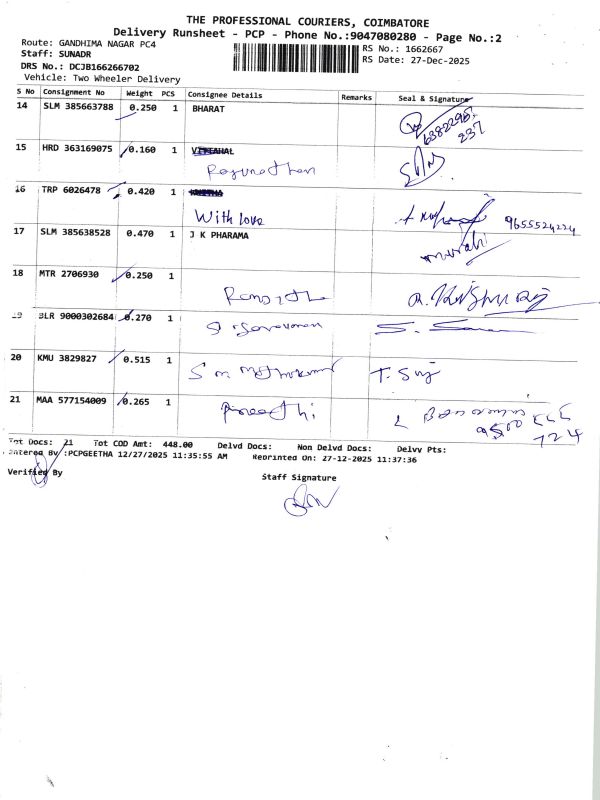 THE PROFESSIONAL COURIERS, COIMBATORE
Delivery Runsheet - PCP - Phone No.:9047080280 - Page No.:2
Route: GANDHIMA NAGAR PC4
RS No.: 1662667
Staff: SUNADR
RS Date: 27-Dec-2025
DRS No.: DCJB166266702
Vehicle: Two Wheeler Delivery
S No Consignment No Weight PCS Consignee Details Remarks Seal & Signature
14 SLM 385663788 0.250 1 BHARAT
237
15 HRD 363169075 0.160 1
16 TRP 6026478 0.420 1
With love 9655524224
17 SLM 385638528 0.470 1 J K PHARAMA
murali
18 MTR 2706930 0.250 1
Ranjith
19 BLR 9000302684 0.270 1
S. Saravanan
20 KMU 3829827 0.515 1
21 MAA 577154009 0.265 1
Preethi
Tot Docs: 21 Tot COD Amt: 448.00 Delvd Docs: Non Delvd Docs: Delvv Pts:
Entered By :PCPGEETHA 12/27/2025 11:35:55 AM Reprinted On: 27-12-2025 11:37:36
Verified By
Staff Signature